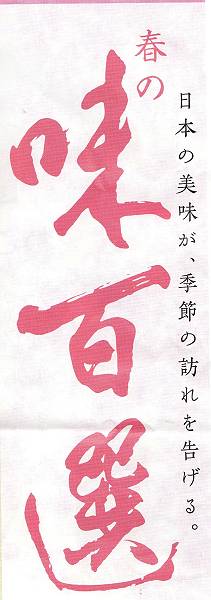 日本の美味が、季節の訪れを告げる。
春の
味百選